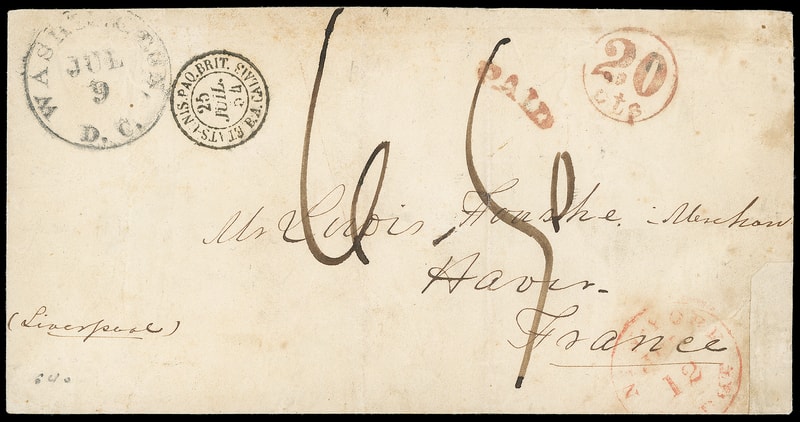 WASHINGTON
JUL
9
D. C.
ETATS-UNIS. PAQ. BRIT. V. A. CALAIS
25
JUIL.
54
PAID
20
cts
Mr Louis
Merchan
Havre
France
(Liverpool)
NEW YORK
12